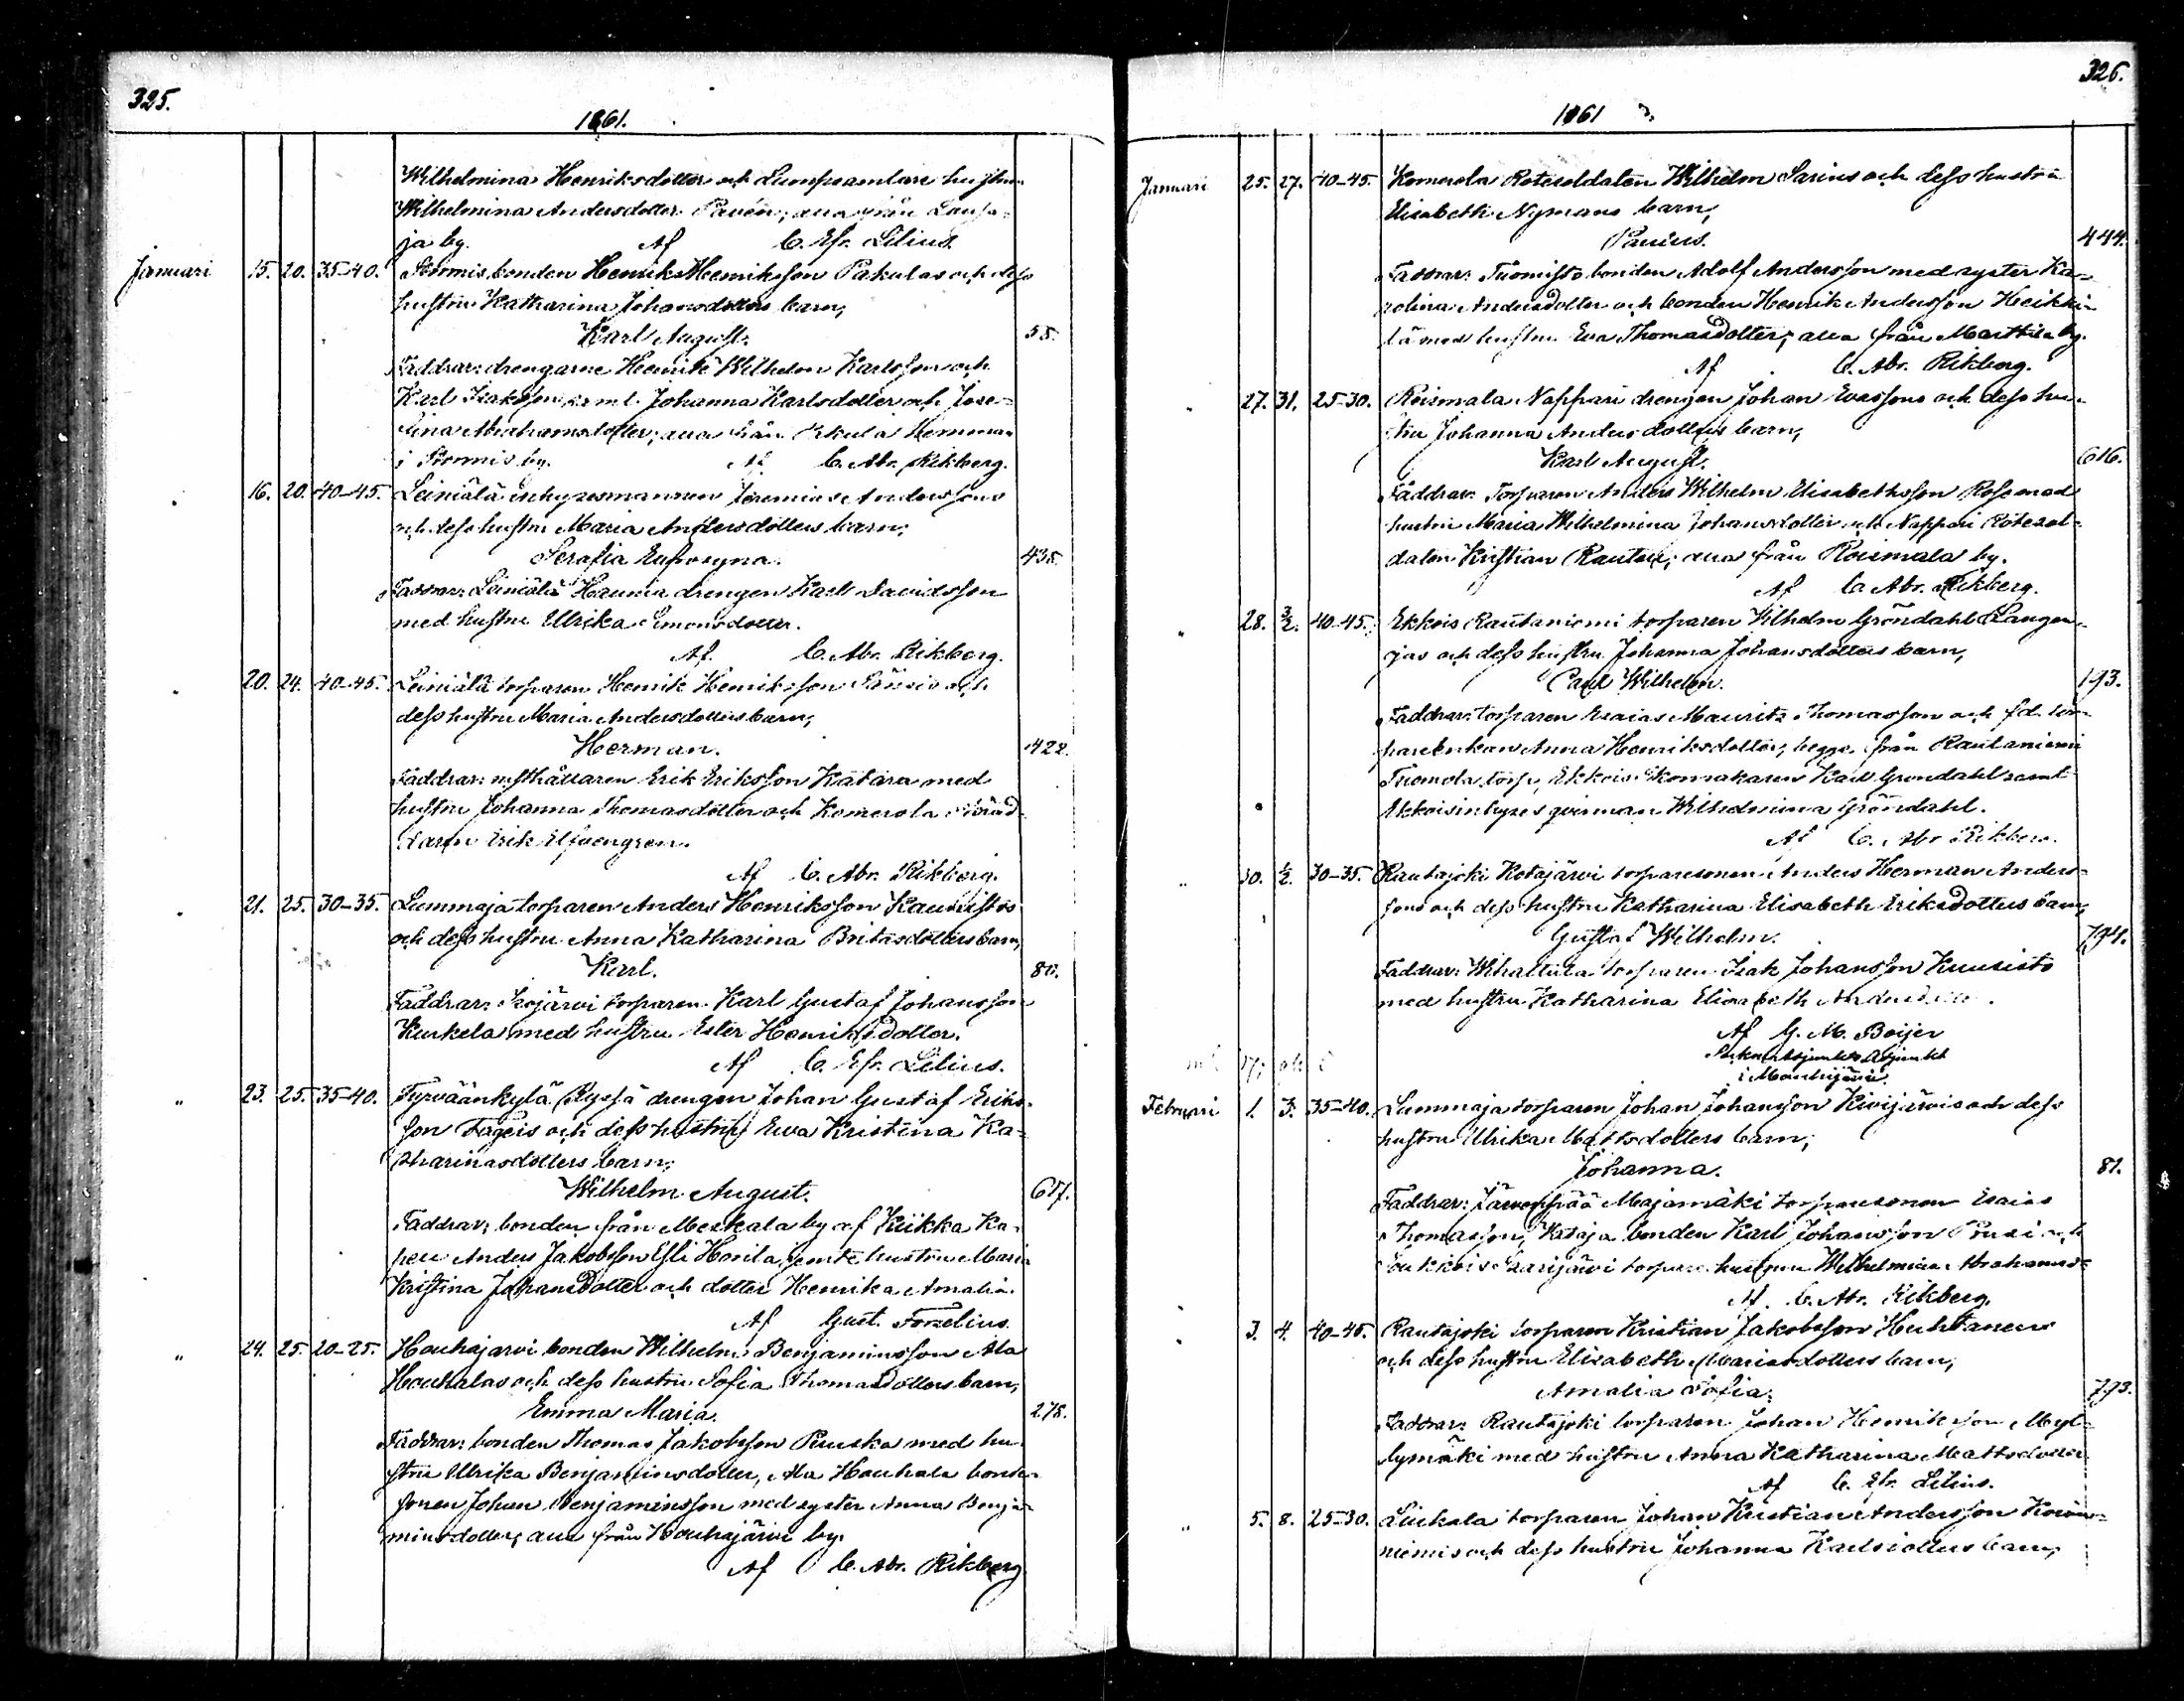 325.
1861.
Wilhelmina Henriksdotter och Lumpsamlare hustrun
Wilhelmina Andersdotter Pauén; alla från
ja by. Af C. Efr. Lilius.
Januari 15. 20. 35-40. Stormis bonden Henrik Henriksson Pakulas och dess
hustru Katharina Johansdotters barn,
Karl August. 55.
Faddrar: drengarne Henrik Wilhelm Karlsson och
Karl Isaksson, saml. Johanna Karlsdotter och Jose-
fina Abrahamsdotter; alla från hemman
i Stormis by. Af C. Abr. Rikberg.
16. 20. 40-45. Leiniälä inhysesmannen Jeremias Anderssons
och dess hustru Maria Andersdotters barn;
Serafia Eufrosyna. 435.
Faddrar: Leiniälä Haunia drengen Karl Davidsson
med hustru Ullrika Simonsdotter.
Af C. Abr. Rikberg.
20. 24. 40-45. Leiniälä torparen Henrik Henriksson och
dess hustru Maria Andersdotters barn;
Herman. 422.
Faddrar: Erik Eriksson Katara med
hustru Johanna Thomasdotter och Komerola
Erik Elfvengren.
Af C. Abr. Rikberg.
21. 25. 30-35. Lammaja torparen Anders Henriksson Kauniistos
och dess hustru Anna Katharina Britasdotters barn,
Karl. 80.
Faddrar: Isojärvi torparen Karl Gustaf Johansson
Kurkela med hustru Ester Henriksdotter.
Af C. Efr. Lilius.
" 23. 25. 35-40. Tyrväänkylä Ryssä drengen Johan Gustaf Eriks-
son Fageis och dess hustru Ewa Kristina Ka-
tharinasdotters barn,
Wilhelm August. 617.
Faddrar: bonden från Meskala by af Kiikka Ka-
pell Anders Jakobsson Yli Honila jemte hustru Maria
Kristina Johansdotter och dotter Henrika Amalia.
Af Gust. Forelius.
" 24. 25. 20-25. Houhajarvi bonden Wilhelm Benjaminsson Ala
Houhalas och dess hustru Sofia Thomasdotters barn,
Emma Maria. 278.
Faddrar: bonden Thomas Jakobsson Ruuska med hu-
stru Ulrika Benjaminsdotter, Ala Houhala bonde-
sonen Johan Benjaminsson med syster Anna Benja-
minsdotter; alla från Houhajärvi by.
Af C. Abr. Rikberg
326.
1861
Januari 25. 27. 40-45. Komerola Rotesoldaten Wilhelm Sarins och dess hustru
Elisabeth Nymans barn,
Paulus. 444.
Faddrar: Tuomisto bonden Adolf Andersson med syster Ka-
rolina Andersdotter och bonden Henrik Andersson Heikki-
lä med hustru Eva Thomasdotter; alla från Marttila by.
Af C. Abr. Rikberg.
27. 31. 25-30. Roismala Nappari drengen Johan Evassons och dess hu-
stru Johanna Andersdotters barn,
Karl August. 616.
Faddrar: Torparen Anders Wilhelm Elisabethsson med
hustru Maria Wilhelmina Johansdotter och Nappari Rotesol-
daten Kristian Rautell; alla från Roismala by.
Af C. Abr. Rikberg.
28. 3/2. 40-45. Ekkois Rautaniemi torparen Wilhelm Gröndahl
och dess hustru Johanna Johansdotters barn,
Carl Wilhelm. 193.
Faddrar: torparen Esaias Mauritz Thomasson och f.d. tor-
pareenkan Anna Henriksdotter, begge från Rautaniemi
Tuomola torp, Ekkois Skomakaren Karl Gröndahl samt
Ekkois inhyses qvinnan Wilhelmina Gröndahl.
Af C. Abr Rikberg.
" 30. 1/2. 30-35. Rautajoki Kotajärvi torparesonen Anders Herman Anders-
sons och dess hustru Katharina Elisabeth Eriksdotters barn,
Gustaf Wilhelm. 794.
Faddrar: torparen Isak Johansson Kuusisto
med hustru Katharina Elisabeth
Af G. M. Boijer
i Mouhijärvi.
Februari 1. 3. 35-40. Lammaja torparen Johan Johansson Kivijärvis och dess
hustru Ulrika Mattsdotters barn,
Johanna. 81.
Faddrar: Järvenpää Majamäki torparesonen Esaias
Thomasson, Kataja bonden Karl Johansson och
Saarijärvi torpare hustrun Wilhelmina Abrahams-
Af. C. Abr. Rikberg.
3. 4. 40-45. Rautajoki torparen Kristian Jakobsson Huhtanens
och dess hustru Elisabeth Mariasdotters barn,
Amalia Sofia. 793.
Faddrar: Rautajoki torparen Johan Henriksson Myl-
lymäki med hustru Anna Katharina Mattsdotter
Af C. Efr. Lilius.
" 5. 8. 25-30. Liukala torparen Johan Kristian Andersson
niemis och dess hustru Johanna Karlsdotters barn,